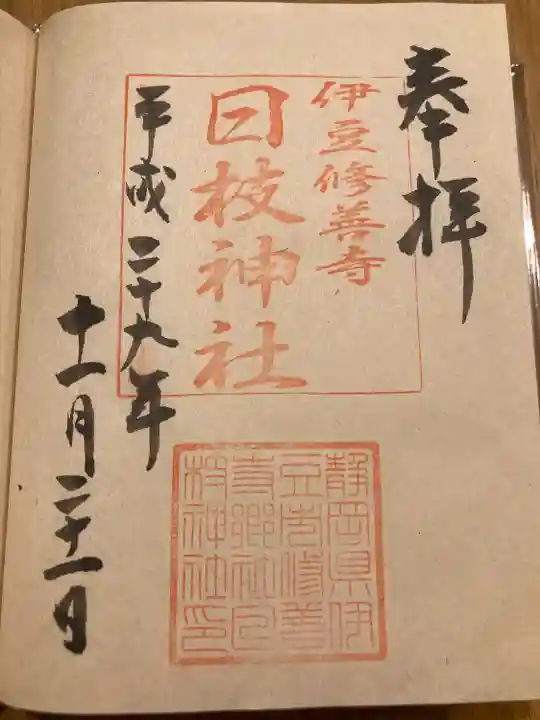 奉拝
伊豆修善寺
日枝神社
平成二十九年
十一月二十一日
静岡県伊
豆市修善
寺郷社日
枝神社印